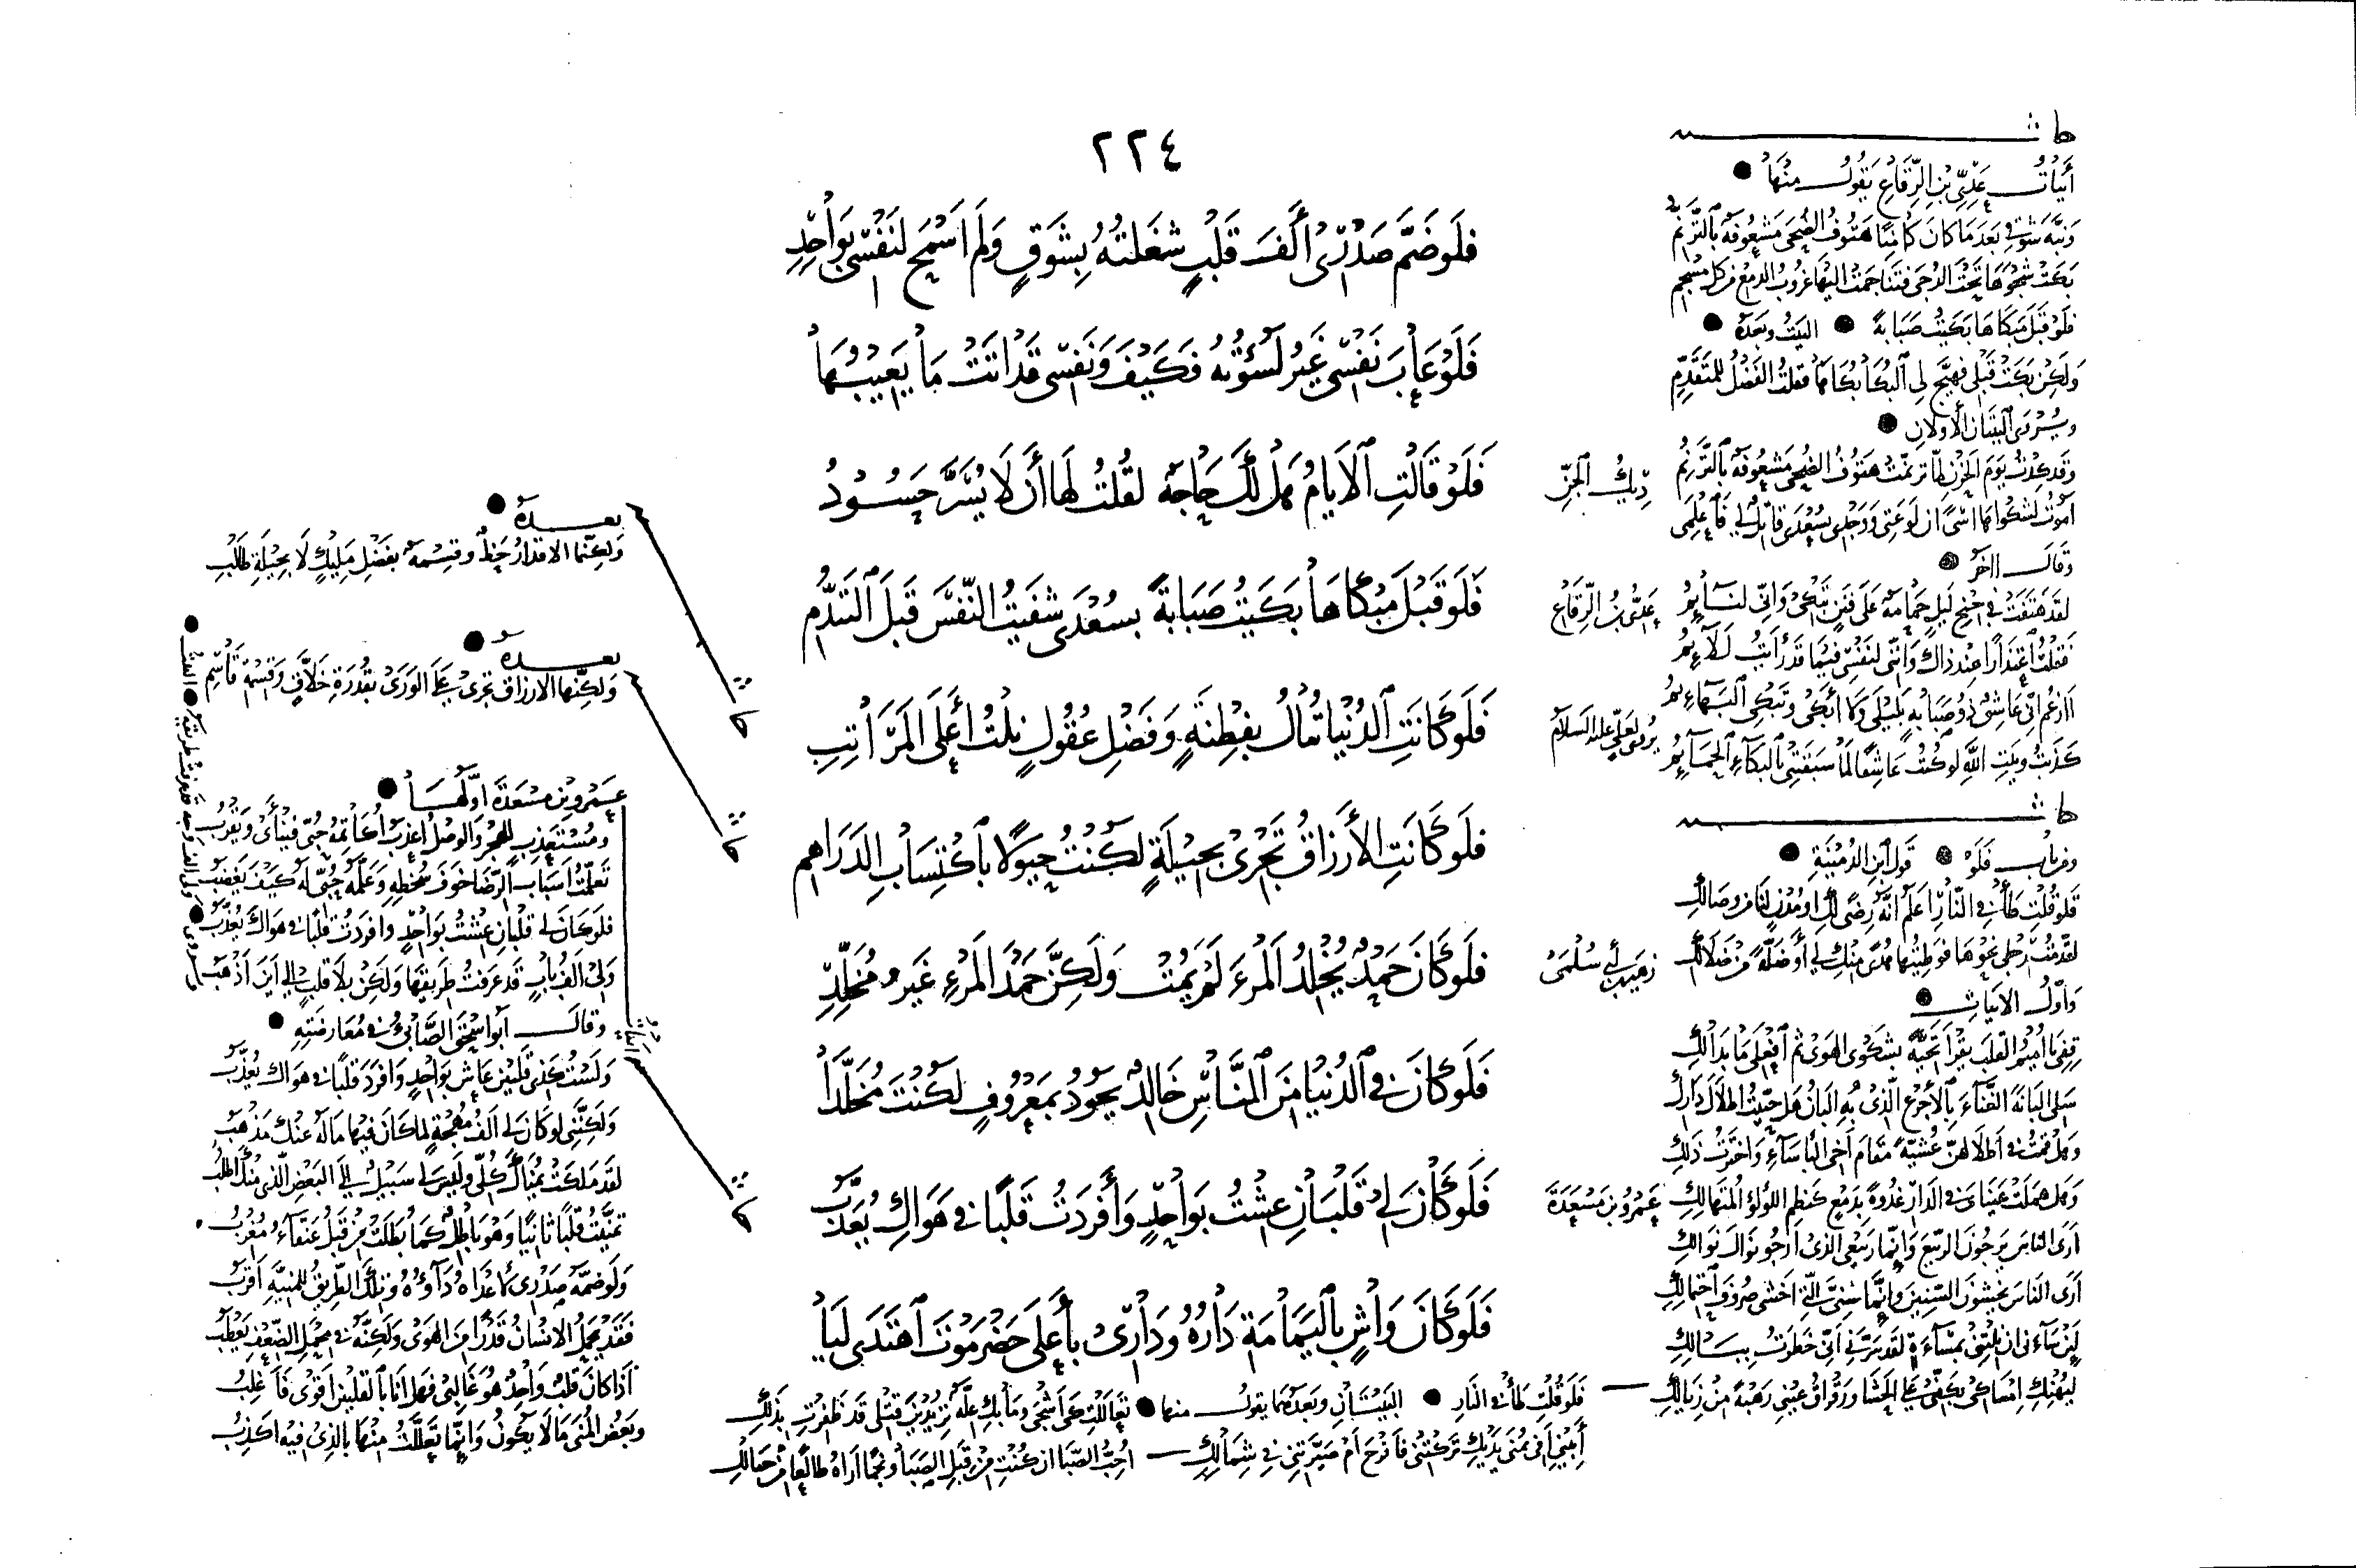 ٢٢٤
فَلَو ضَمَّ صَدْرِى أَلفَ قَلبٍ شغَلتُهُ بِشَوقٍ وَلَم اَسْمَح لنَفْسِى بَواحِدِ
فَلَوْ عَابَ نَفْسِى غَيرُ لَسُؤتُهُ فَكَيفَ وَنَفسِى قَد اتَتْ مَا يَعيبُهَا
فَلَوْ قَالَتِ ٱلاَيامُ هَل لَكَ حَاجة لقُلتُ لَها أَن لَا يُسَرَّ حَسُودُ
دِيكُ الجِنّ
فَلَو قَبْلَ مَبْكَاهَا بَكَيتُ صَبَابةً بسُعْدَى شفَيتُ النَّفسَ قَبلَ ٱلتَنَدُّمِ
عَدىُّ بنُ الرِّقَاع
فَلَو كَانَتِ ٱلدُنْيَا تُنالُ بفِطِنَةٍ وَفَضلِ عُقُولٍ نِلتُ أَعلَى المَرَاتِبِ
يُروى لعَلىّ عليه السَلام
فَلَو كَانَتِ الأَرزَاقُ تَجْرِى بحِيْلَةٍ لكُنتُ بِٱكْتِسَابِ الدَرَاهِم
فَلَو كَانَ حَمدٌ يُخْلِدُ المَرءَ لَم يَمُتْ وَلَكِنَّ حَمدَ المَرءِ غَيرُ مُخلِدِ
زهَير بن أَبي سُلمَى
فَلَو كَانَ فِى ٱلدُنيَا مِنَ ٱلنَّاسِ خَالِدٌ بجُودٍ بمَعرُوفٍ لَكُنتَ مُخَلَّدَا
فَلَو كَانَ لِى قَلْبَانِ عِشتُ بَواحِدٍ وَأَفرَدتُ قَلبًا فِى هَوَاكِ يُعَذَّبُ
عَمرُو بن مَسْعَدَةَ
فَلَو كَانَ وَاشٍ بِاليَمَامَةِ دَارُهُ وَدَارِىْ بأَعلَى حَضْرمَوْتَ ٱهتَدَى لِيَا
أَبيَاتُ عَدِىِّ بنِ الرِّقَاعِ يَقُولُ مِنهَا
وَنبَّهَ شَوقِى بَعدَ مَا كَانَ نَائمًا هَتُوفُ الضُحى مَشعُوفَة بالتَّرنُّمِ
بَكَت شَجْوَهَا تَحْتَ الدُجَى فتَسَاجَمَت اليهَا غرُوبُ الدَمْعِ مِن كُل مَسْجمِ
فلَو قبَلَ مَبكَاهَا بَكَيتُ صَبَابةً البَيتُ وبَعدَهُ
وَلكِن بَكَت قَبلِى فهَيَّجَ لِى البُكَا بُكَاهَا فقُلتُ الفَضلُ للمتَقَدِّمِ
ويُروَى البَيتَانِ الأَولانِ
وَقَد كِدتُ يَومَ الحُزنِ لمّا تَرنَّمَت هَتُوفُ الضُحَى مَشعُوفَة بالتَرنُّمِ
أموتُ لشَكوَاهَا اسًى ان لَوعَتِى وَوَجْدِى بسُعْدَى قَاتِلٌ لِى فَاعْلَمِى
وَقَالَ اخَر
لقَد هتَفَت فى جُنْحِ لَيلٍ حَمامَة عَلَى فنَنٍ تَبْكِى وَانِّى لنَائمُ
فَقلتُ اعتِذَارًا عِندَ ذَاكَ وَانَّنِى لنَفسِى فيمَا قَد رأَيتُ لَلَائمُ
أأزعُم انِّى عَاشِقٌ ذو صَبَابَة بلَيلَى وَلَا أَبكى وَتَبكِى البَهَائمُ
كَذَبتُ وبَيتِ اللَّهِ لَو كُنتُ عَاشِقًا لَمَا سَبَقَتنِى بالبكَاءِ الحمَائمُ
وَمن بابِ فَلَوْ قَولُ ابنِ الدُمَينَةِ
فَلَو قُلتِ طَأْ فِى النَّارِ أَعلَم انَّهُ رضًى لَكِ او مُدنٍ لنَا مِن وصَالِكِ
لقَدَّمتُ رِجلِى نَحوَهَا فوَطِئتُها هُدًى مِنكِ لِى أَو ضَلَّةً مِن ضَلَالكِ
وَأَوّلُ الأبيَاتِ
قِفِى يا أُمَيمَ القَلبِ نقرَا تَحيَّةً بشَكوَى الهَوَى ثم افعَلِى مَا بَدَا لَكِ
سَلِى البَانَةَ الغنَّاءَ بِالأَجْرَعِ الَّذِى بهِ البَانُ هَل حَيّيتُ اطلَالَ دَارِكِ
وَهَل قمتُ فى أَطلَالِهِنَّ عَشيَّةً مَقَامَ أَخِى البَأسَاءِ وَاختَرتُ ذَلِكِ
وَهَل همَلَت عَينَاىَ فى الدَارِ غُدوَةً بدَمعٍ كَنَظمِ اللُؤلُؤِ المتَهَالِكِ
أَرَى الناسَ يَرجُونَ الرَبيعَ وَانَّمَا رَبيعِى الذِى أَرجُو نَوَالُ نَوَالِكِ
أَرَى النَاسَ يَخشَونَ السِّنِينَ وَانَّمَا سِنيَّ الَّتِى اَخشَى صُرُوفَ احتِمالِكِ
لَئِن سَاءَنِى ان نلتِنِى بمَسَاءَةٍ لقَد سَرَّنِى أَنِّى خَطَرتُ ببَالِكِ
ليَهْنِكِ امسَاكِى بكَفِّى عَلَى الحَشَا ورَقرَاقُ عَينِى رَهبَةً مِن زِيَالِكِ
فَلَو قُلتِ طَأْ فى النَارِ البَيتَانِ وبَعدَهُمَا يقولُ منهَا تعَالَلتِ كَى أَشجَى ومَا بكِ عِلَّةٌ تُرِيدِينَ قتلِى قَد ظَفِرتِ بذَلكِ
أَبِينِى أَفِى يُمنَى يَدَيكِ تَركتِنِى فأَفرَحَ أَم صَيَّرتِنِى فى شِمَالِكِ احِبُّ الصَبَا ان كُنتِ مِن قِبَلِ الصَبَا ونَجمًا ارَاهُ طَالعًا مِن حِيَالكِ
بعدهُ
وَلكِنَّما الاقدَارُ حَظٌ وقِسْمة بفَضلِ مَلِيكٍ لَا بحِيلَةِ طَالِبِ
بعدهُ
وَلكِنَّها الارزَاق تجرِى عَلَى الوَرَى بقُدرَةِ خَلَّاقٍ وَقِسْمَةِ قَاسِمِ
عَمرو بن مَسْعَدَةَ أوَّلهَا
ومُستَعذِبٍ للهَجرِ وَالوَصلُ أعذَبُ أُكَاتِمهُ حُبِّى فيَنأَى وَيقرُبُ
تَعلَّمتُ اسبَابَ الرِّضَا خَوفَ سُخطِهِ وَعَلَّمَهُ حُبِّى لَهُ كَيفَ يَغضَبُ
فلَو كَانَ لِى قَلبَانِ عِشتُ بوَاحِدٍ وافرَدتُ قَلبًا فى هوَاكَ يُعَذَّبُ
وَلِى أَلفُ بابٍ قَد عَرَفتُ طَريقَهَا وَلَكِن بلَا قَلبٍ إِلى أَينَ أَذهَبُ
وَقالَ أَبو اسحٰقَ الصَّابِىُ فى مُعَارضَتِهِ
وَلَستُ كَذِى قَلبَينِ عَاشَ بوَاحِدٍ وَافرَدَ قَلبًا فى هوَاكَ يُعَذَّبُ
وَلكِنَّنِى لَو كَانَ لِى أَلفُ مُهجَةٍ لما كَانَ فيهَا مَا لَهُ عَنكَ مَذهَبُ
لقَد مَلكَت يُمنَاكَ كُلِّى وَلَيسَ لِى سَبيلٌ إِلَى البَعضِ الَّذى مِنكَ اطلبُ
تمنَّيتُ قَلبًا ثَانيًا وَهوَ باطِلٌ كمَا بَطَلَت مِن قَبلُ عَنقَاءُ مُغرِبُ
وَلَو ضَمَّهُ صَدرِى لأعدَاهُ دَاؤهُ وتلكَ الطَرِيقُ للمنيَّةِ اَقرَبُ
فَقَد يَحمِلُ الانسَانُ قَدرًا مِنَ الهَوَى وَلَكِنَّهُ فى مَحمِلِ الضِعفِ يَعْطَبُ
اذَا كانَ قَلبٌ وَاحِدٌ هُوَ غَالبِى فهَل أَنَا بالقَلبَينِ اقوَى فَأَغلِبُ
وَبَعضُ المُنَى مَا لَا يَكُونُ وَانَّمَا تَعَلَّلتُ مِنهَا بالذِى فيهِ اكذبُ